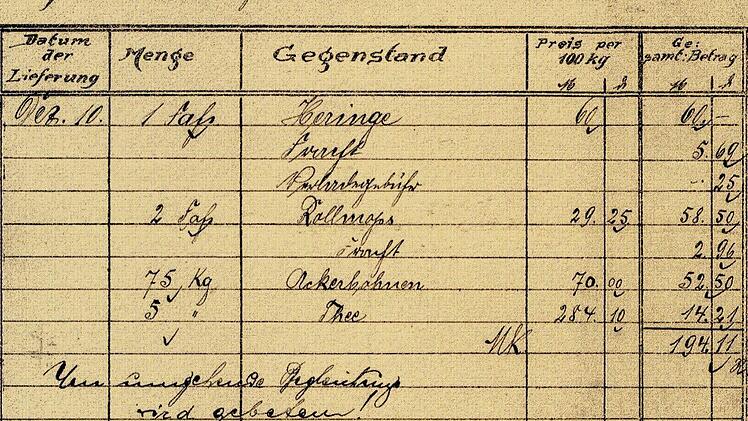 Datum der Lieferung Menge Gegenstand Preis per 100 kg Ge: samt: Betrag
M ₰ M ₰
Dez. 10. 1 Faß Heringe 60 60 –
Fracht 5. 69
Verladegebühr 25
2 Faß Rollmops 29. 25 58. 50
Fracht 2. 96
75 Kg Ackerbohnen 70. 00 52. 50
5 " Thee 284. 10 14. 21
MK 194 11
Um umgehende Begleichung
wird gebeten!